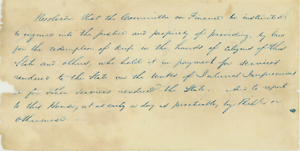 Resolved That the Committee on Finance be instructed
to enquire into the justice and propriety of providing, by law
for the redemption of scrip in the hands of citizens of this
State and others, who hold it in payment for services
rendered to the State on the works of Internal Improvement
or for other services rendered the State. And to report
to this House, at as early a day as practicable, by Bill or
otherwise